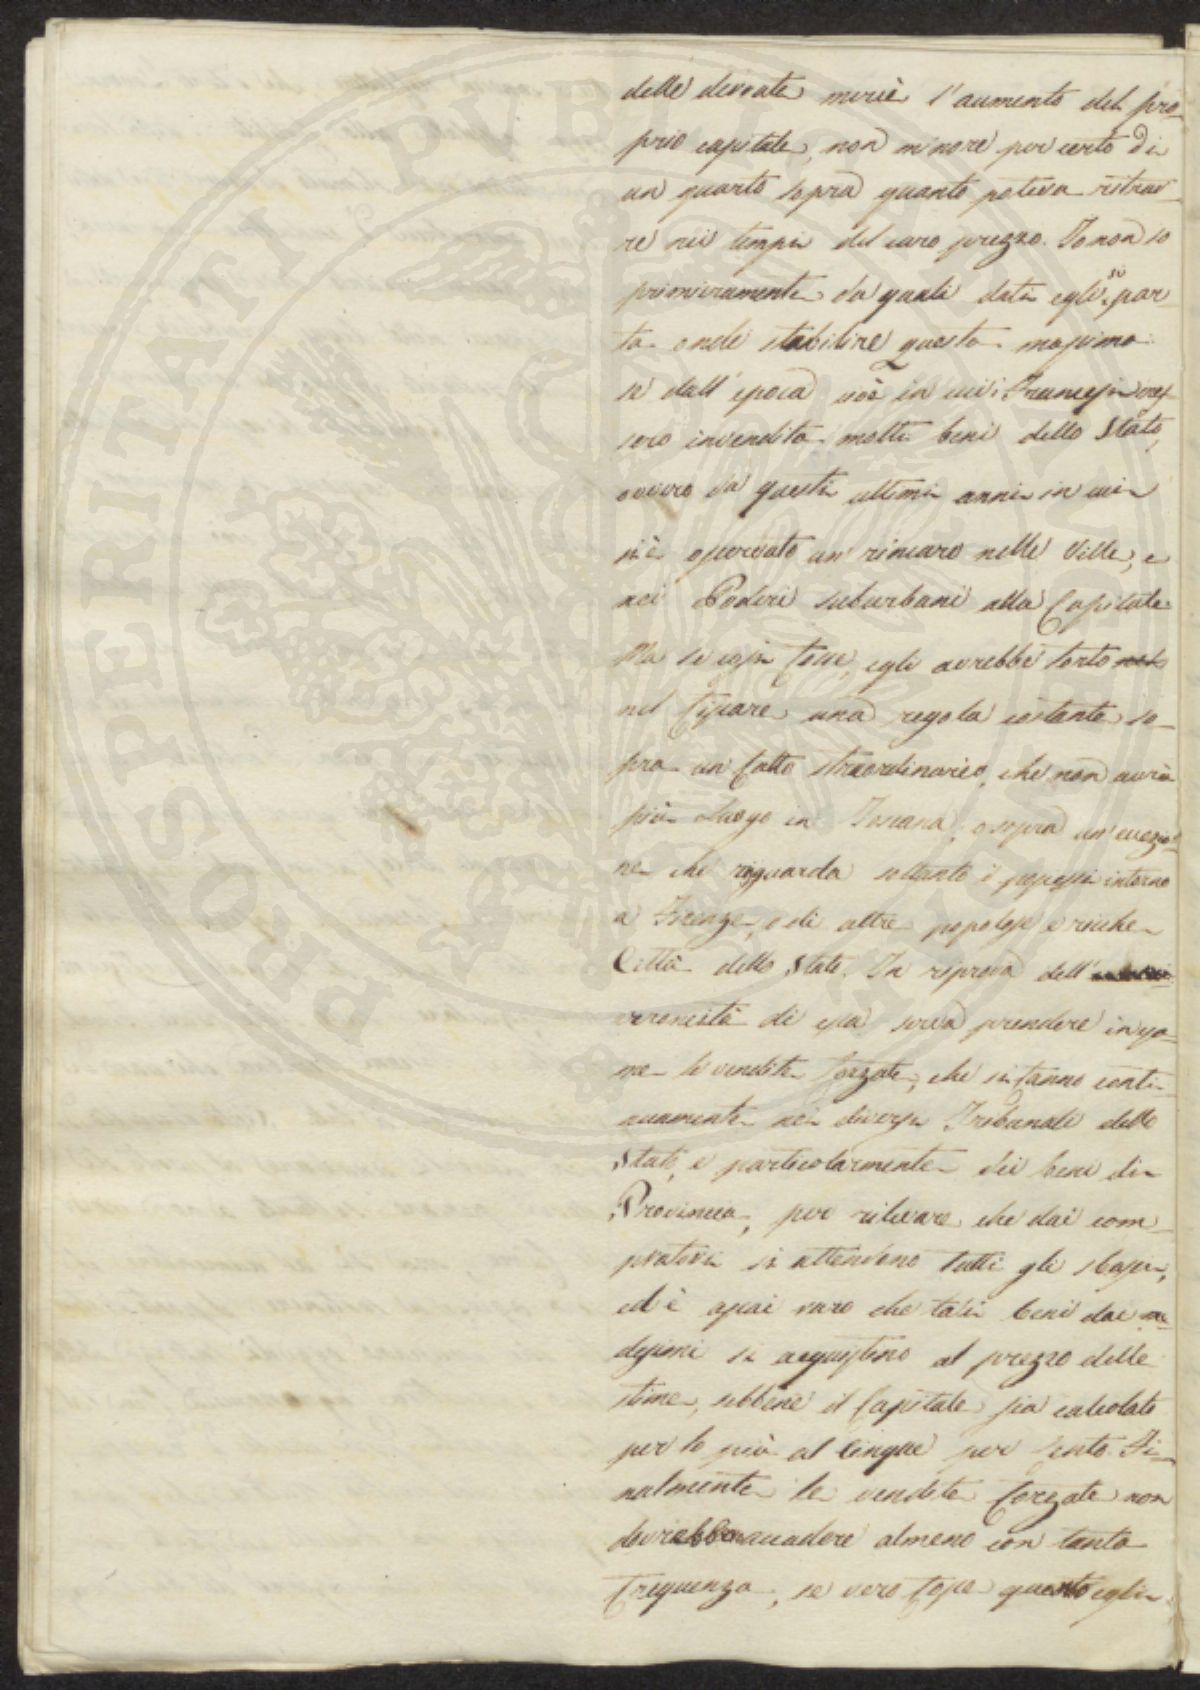 delle derrate meriti l'aumento del pro-
prio capitale, non minore per certo di
un quarto sopra quanto poteva ritrar-
re nei tempi del caro prezzo. Io non so
primieramente da quali dati egli si par-
ta onde stabilire questa massima:
se dall'epoca cioè in cui i Francesi mes-
sero in vendita molti beni dello Stato,
ovvero da questi ultimi anni in cui
si è osservato un rincaro nelle Ville, e
nei Poderi suburbani alla Capitale.
Ma se così fosse, egli avrebbe torto
nel fissare una regola costante so-
pra un fatto straordinario, che non avrà
più luogo in Toscana, o sopra un'eccezio-
ne che riguarda soltanto i possessi intorno
a Firenze, o di altre popolose e ricche
Città dello Stato. In riprova dell'
erroneità di essa giova prendere in esa-
me le vendite forzate, che si fanno conti-
nuamente nei diversi Tribunali dello
Stato, e particolarmente dei beni di
Provincia, per rilevare che dai com-
pratori si attendono tutti gli sbassi,
ed è assai raro che tali beni dai me-
desimi si acquistino al prezzo delle
stime, sebbene il Capitale sia calcolato
per lo più al cinque per Cento. Fi-
nalmente le vendite forzate non
dovrebbero accadere almeno con tanta
frequenza, se vero fosse quanto egli
PROSPERITATI PVBLICAE AVGENDAE